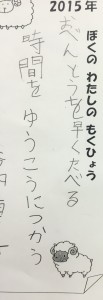 2015年
ぼくの わたしの もくひょう
おべんとうを早くたべる
時間を ゆうこうにつかう